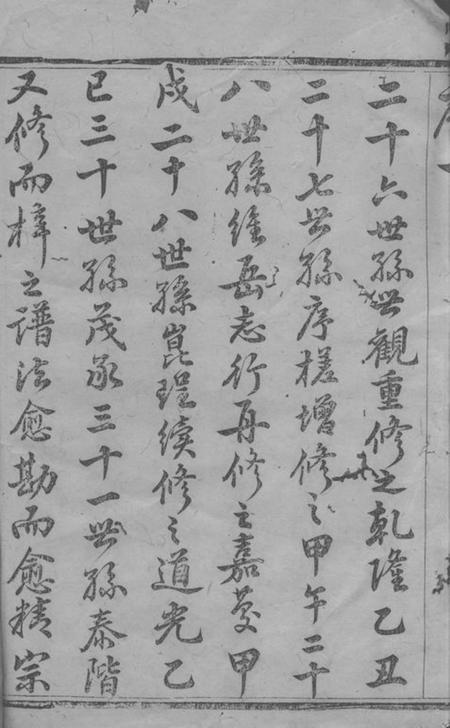 二十六世孫世觀重修之乾隆乙丑
二十七世孫序槎增修之甲午二十
八世孫維岳志行再修之嘉慶甲
戌二十八世孫崑珵續修之道光乙
巳三十世孫茂承三十一世孫泰階
又修而梓之譜法愈勘而愈精宗